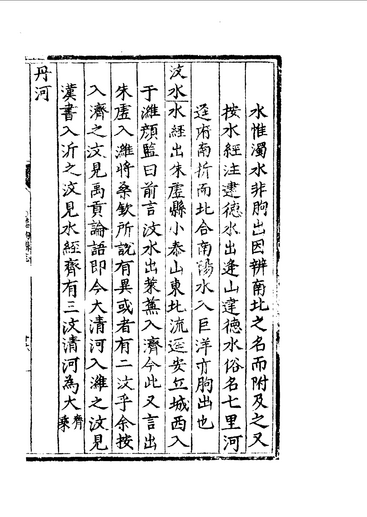 水惟濁水非朐出因辨南北之名而附及之又
按水經注建德水出逢山建德水俗名七里河
逕府南折而北合南陽水入巨洋亦朐出也
汶水水經出朱虛縣小泰山東北流逕安丘城西入
于濰顏監曰前言汶水出萊蕪入濟今此又言出
朱虛入濰將桑欽所說有異或者有二汶乎余按
入濟之汶見禹貢論語即今大清河入濰之汶見
漢書入沂之汶見水經齊有三汶清河為大齊乘
丹河